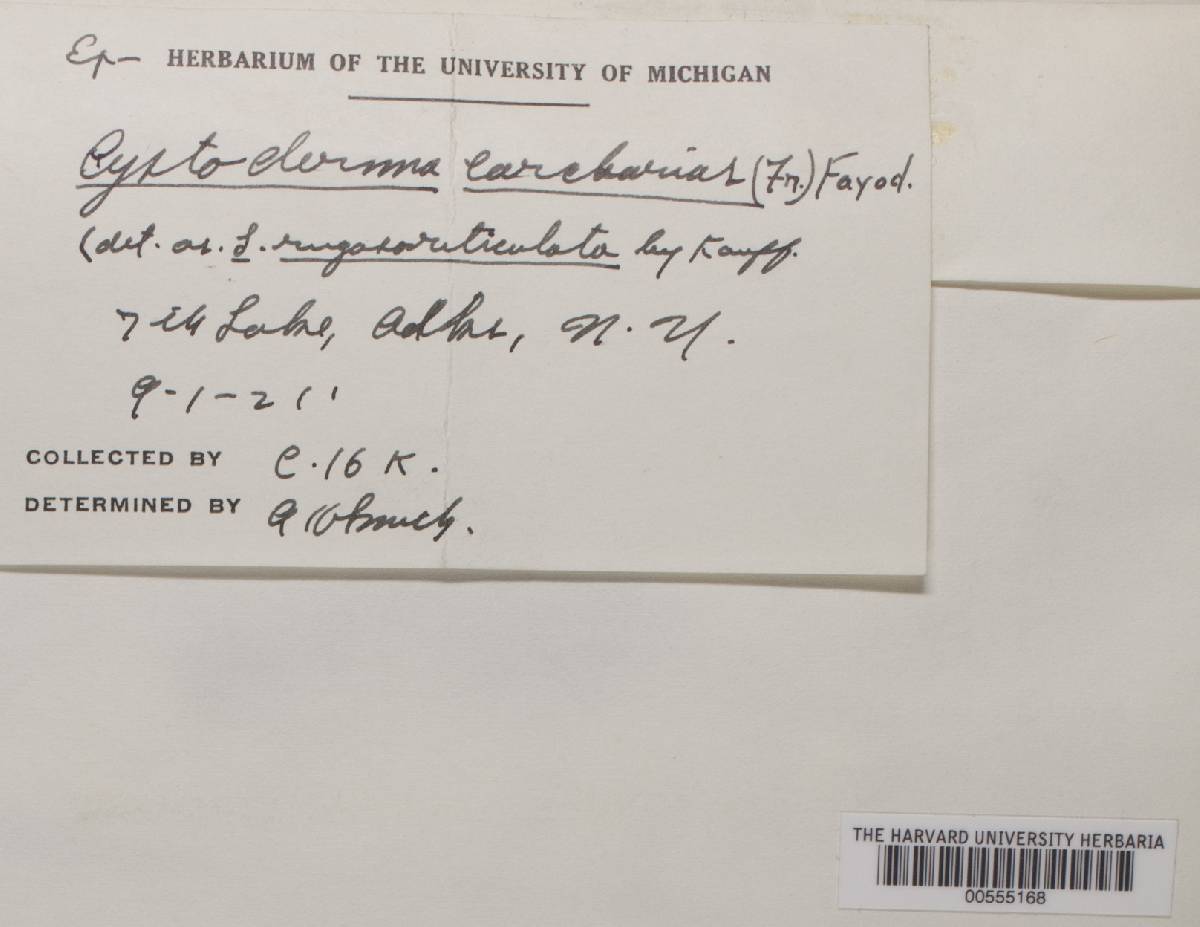 Ex- HERBARIUM OF THE UNIVERSITY OF MICHIGAN
Cystoderma carcharias (Fr.) Fayod.
(det. as. L. rugosoreticulata by Kauff.
7th Lake, Adks, N.Y.
9-1-21
COLLECTED BY C.H.K.
DETERMINED BY A H Smith.
THE HARVARD UNIVERSITY HERBARIA
00555168